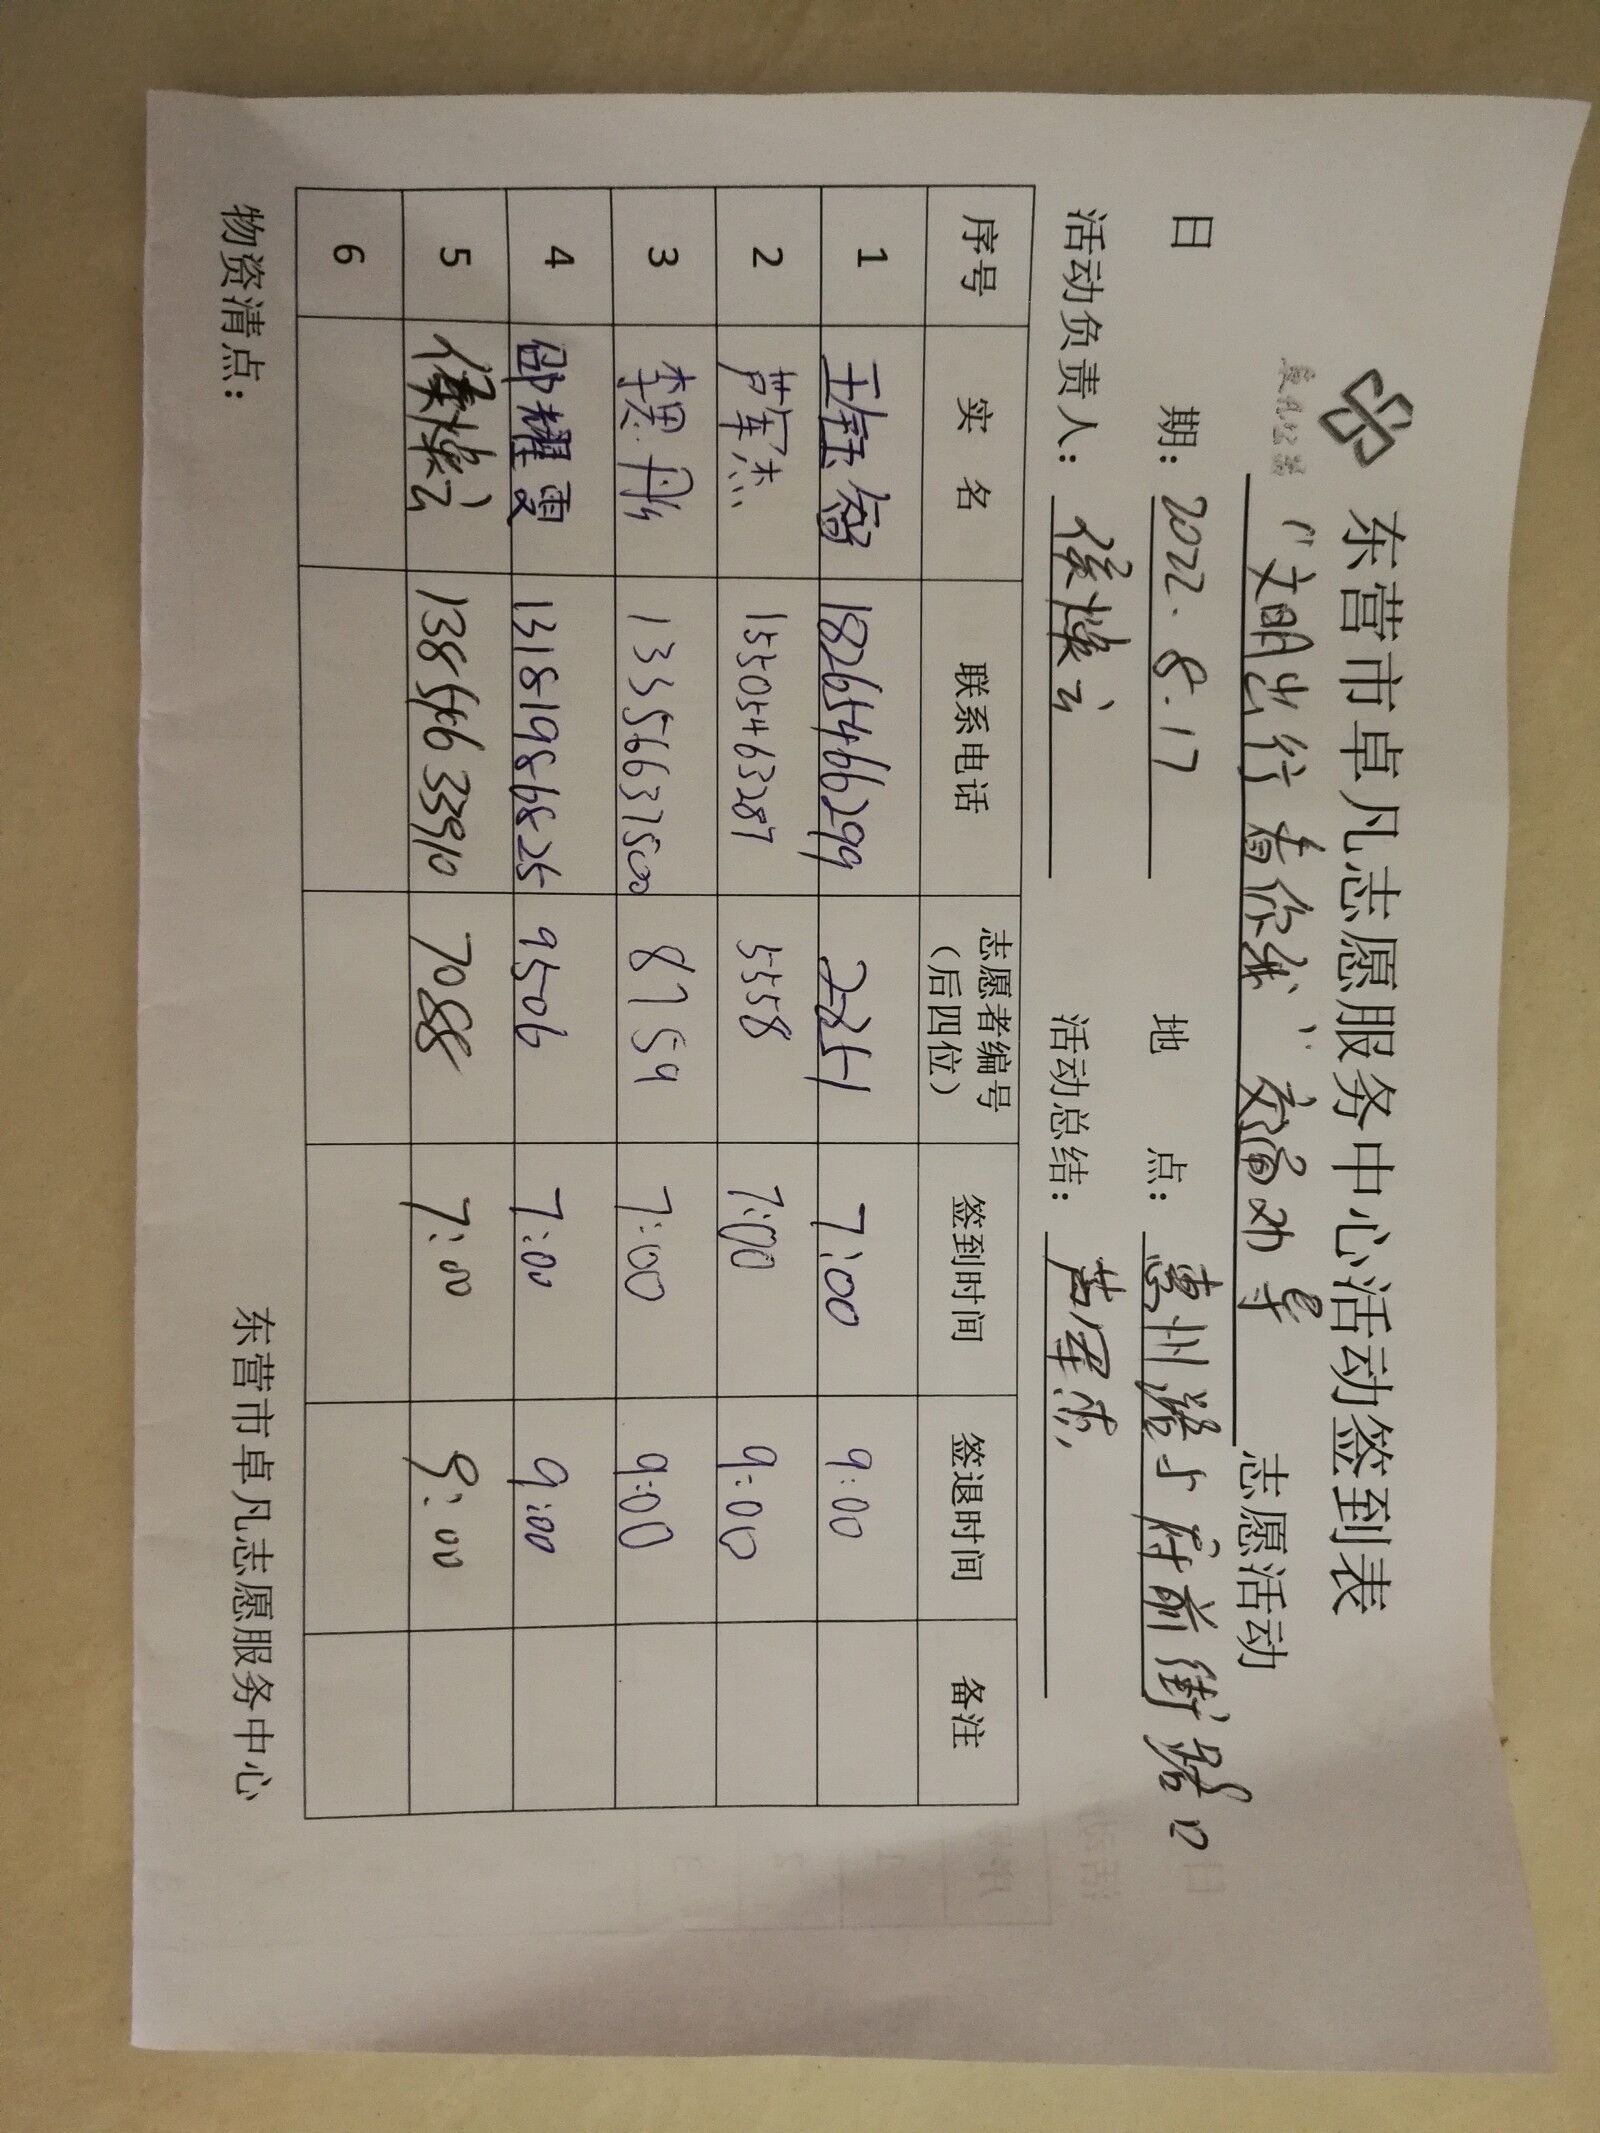 东营市卓凡志愿服务中心活动签到表
“文明出行 看你我” 交通劝导 志愿活动
日 期: 2022.8.17 地 点: 惠州路与府前街路口
活动负责人: 侯焕云 活动总结: 芦军杰
序号 实 名 联系电话 志愿者编号（后四位） 签到时间 签退时间 备注
1 王钰智 18265466299 2251 7:00 9:00
2 芦军杰 15305463287 5558 7:00 9:00
3 李思彤 13356637500 8759 7:00 9:00
4 邵耀雯 13181986825 9506 7:00 9:00
5 侯焕云 13854633910 7088 7:00 9:00
6
物资清点:
东营市卓凡志愿服务中心